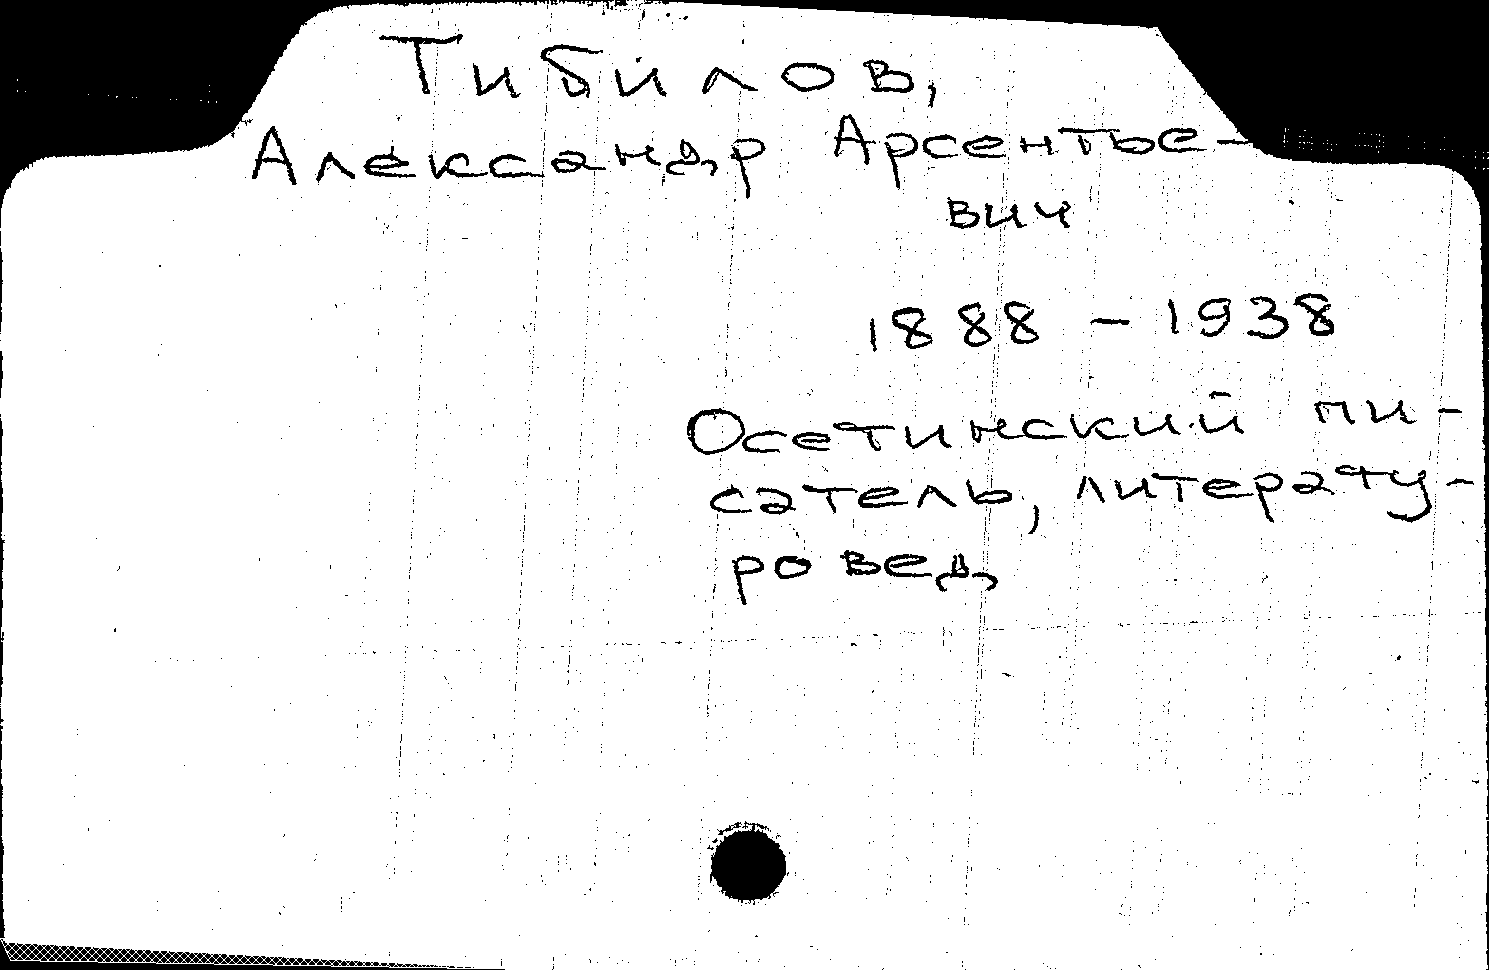 Тибилов,
Александр Арсентье-
вич
1888 - 1938
Осетинский пи-
сатель, литерату-
ровед